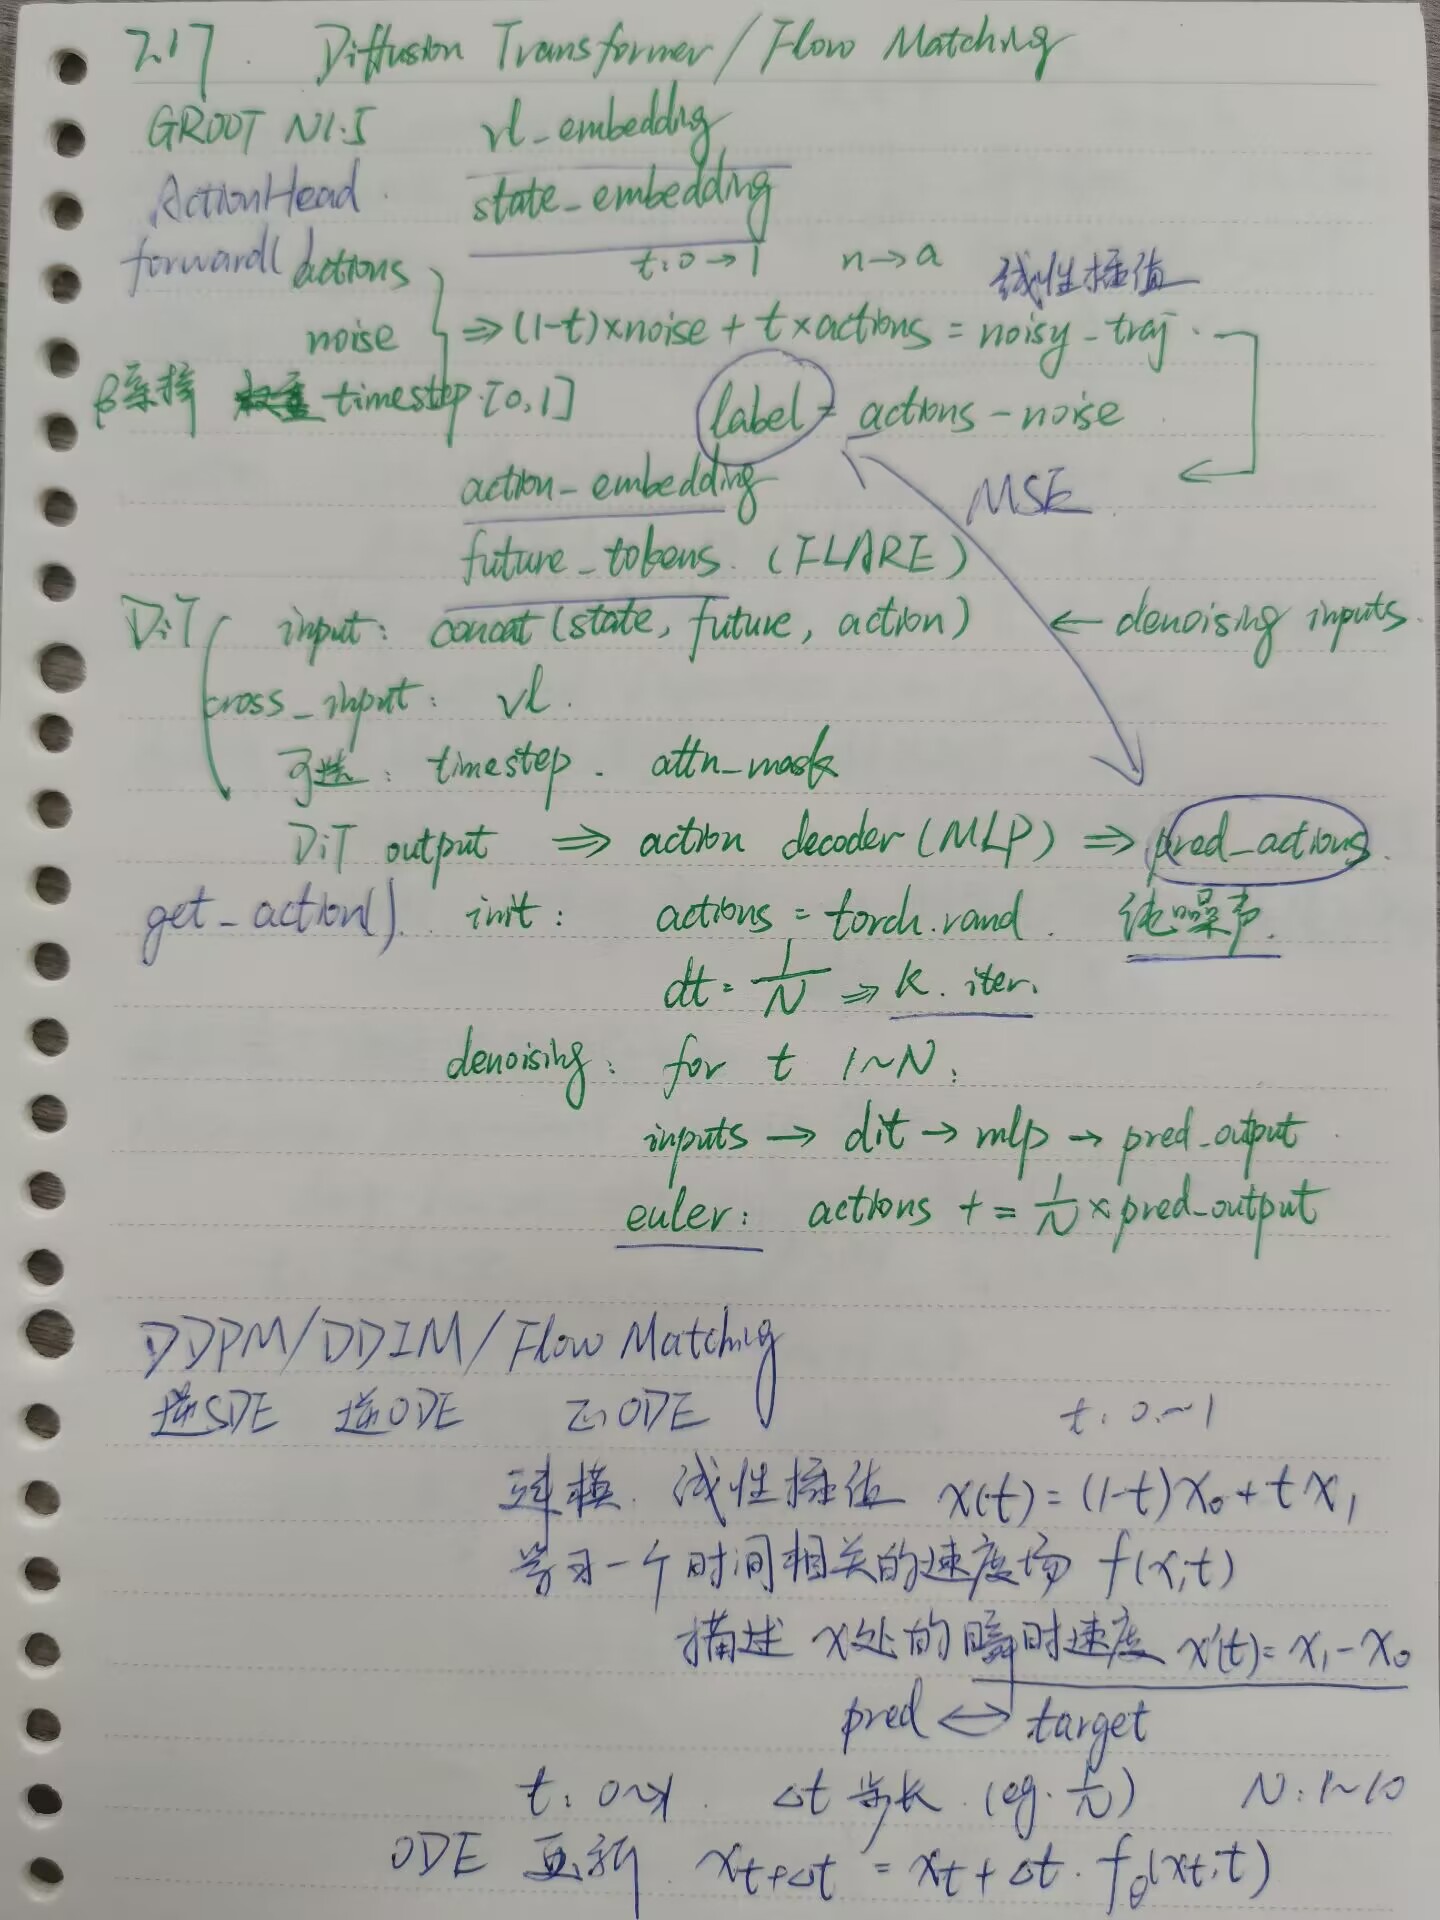 2.17. Diffusion Transformer/Flow Matching
GROOT N1.5 vl_embedding
ActionHead. state_embedding
t:0→1 n→a 线性插值
forward( actions
noise ⇒(1-t)×noise + t×actions = noisy_traj.
β采样 权重 timestep.[0,1] label = actions - noise
action_embedding MSE
future_tokens. (FLARE)
DiT input: concat(state, future, action) ← denoising inputs.
cross_input: vl.
可选: timestep. attn_mask
DiT output ⇒ action decoder(MLP) ⇒ pred_actions.
get_action(). init: actions = torch.rand. 纯噪声.
dt = 1/N ⇒ k. iter.
denoising: for t 1~N:
inputs → dit → mlp → pred_output
euler: actions += 1/N × pred_output
DDPM/DDIM/Flow Matching
逆SDE 逆ODE 正ODE t: 0~1
建模. 线性插值 x(t)=(1-t)x₀+tx₁
学习一个时间相关的速度场 f(x,t)
描述 x处的瞬时速度 x'(t)=x₁-x₀
pred ↔ target
t: 0~1. Δt 步长. (eg. 1/N) N:1~10
ODE 更新 xt+Δt = xt+Δt·fθ(xt,t)